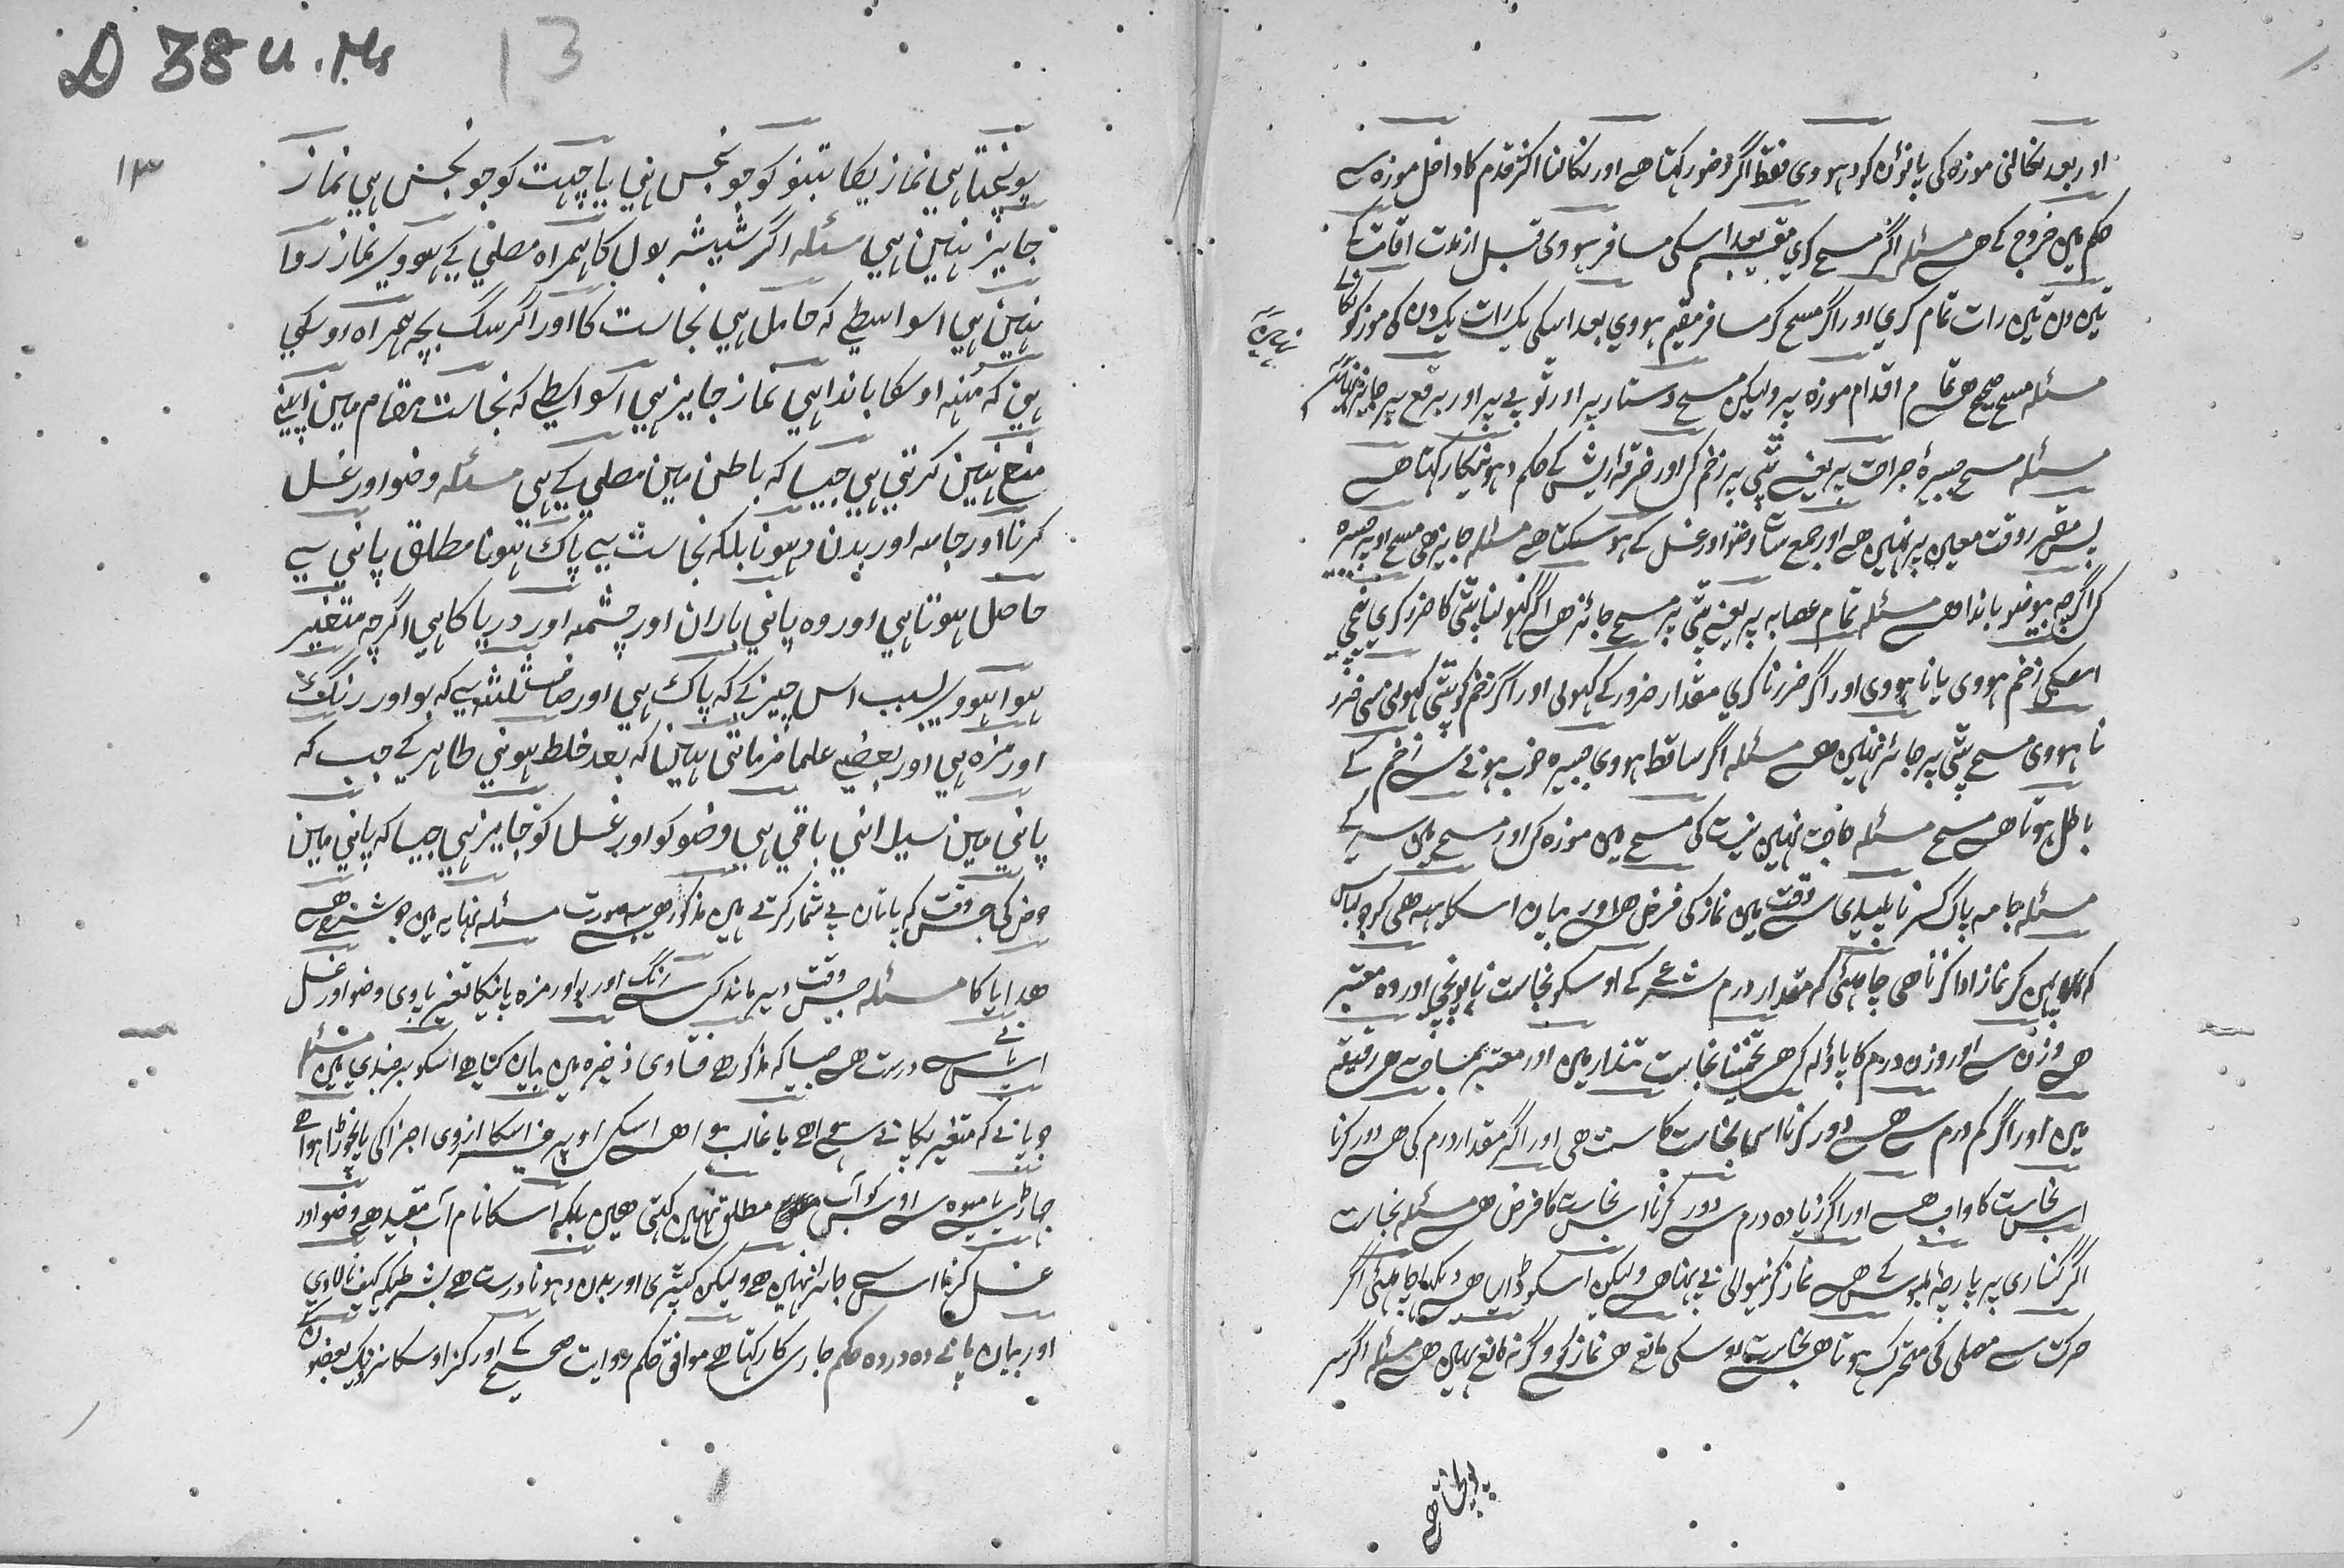 اور بعد نکالنی موزہ کی پانوں کو دہووی فقط اگر وضو رکہتا ہے اور نکالنا اکثر قدم کا داخل موزہ سے
حکم میں خروج کے ہے مسئلہ اگر مسح کری مقیم بعد اسکی مسافر ہووی قبل از مدت اقامت کے
تین دن تین رات تمام کری اور اگر مسح کر مسافر مقیم ہووی بعد اسکی یک رات یک دن کی موزہ کو نکالے
مسئلہ مسح صحیح ہے تمام اقدام موزہ پر ولیکن مسح دستار پر اور ٹوپی پر اور برقع پر جایز
مسئلہ مسح جبیرۂ جراحت پر یعنے پٹی پر زخم کی اور خرقہ ریش کے حکم دہونیکا رکہتا ہے
پس مقرر وقت معین پر نہیں ہے اور جمع سات وضو اور غسل کے ہو سکتا ہے مسئلہ جایز ہی مسح اوپر جبیرہ
کی اگرچہ بیوضو باندا ہے مسئلہ تمام عصابہ پر یعنے پٹی پر مسح جائز ہے اگر کہولنا پٹی کا ضرر کری نیچی
اسکی زخم ہووی یا نا ہووی اور اگر ضرر نا کری مقدار ضرور کے کہولی اور اگر زخم کو پٹی کہولنی سی ضرر
نا ہووی مسح پٹی پر جائز نہیں ہے مسئلہ اگر ساقط ہووی جبیرہ خوب ہونے سے زخم کے
باطل ہوتا ہے مسح مسئلہ حاجت نہیں نیت کی مسح میں موزہ کی اور مسح میں سر کے
مسئلہ جامہ پاک کرنا پلیدی سے وقت میں نماز کی فرض ہے اور بیان اسکا یہہ ہی کہ جو لباس
کہ پہن کر نماز ادا کرنا ہی چاہئی کہ مقدار درم شرعی کے اوسکو نجاست نا پونچی اور وہ معتبر
ہے وزن سے اور وزن درم کا پاؤلہ کی ہے تخمینا نجاست تنداریں اور معتبر بمسافت ہے رقیق
میں اور اگر کم درم سے ہے دور کرنا اس نجاست کا سنت ہی اور اگر مقدار درم کی ہے دور کرنا
اس نجاست کا واجب ہے اور اگر زیادہ درم سے دور کرنا اس نجاست کا فرض ہے مسئلہ نجاست
اگر کناری پر پارچۂ ملبوس کے ہے نماز کرنیوالی نے پہنا ہے ولیکن اسکو ڈالیا ہے دیکہا چاہئی اگر
حرکت سے مصلی کی متحرک ہوتا ہے نجاست اوسکی مانع ہے نماز کو وگرنہ مانع نہیں ہے مسئلہ اگر سر
D 38 U. Ms
13
۱۳
پونچتا ہی نماز یکا تنبو کو جو نجس ہی یا چہت کو جو نجس ہی نماز
جایز نہین ہی مسئلہ اگر شیشہ بول کا ہمراہ مصلی کے ہووے نماز روا
نہین ہی اسواسطے کہ حامل ہی نجاست کا اور اگر سگ بچہ ہمراہ اوسکی
ہی کہ منہ اوسکا باندا ہی نماز جایز ہی اسواسطے کہ نجاست مقام مین اپنے
منع نہین کرتی ہی جیسا کہ باطن مین مصلی کے ہی مسئلہ وضو اور غسل
کرنا اور جامہ اور بدن دہونا بلکہ نجاست سے پاک ہونا مطلق پانی سے
حاصل ہوتا ہی اور وہ پانی باران اور چشمہ اور دریا کا ہی اگرچہ متغیر
ہوا ہووے بسبب اس چیز کے کہ پاک ہی اوصاف ثلثہ سے کہ بو اور رنگ
اور مزہ ہی اور بعضے علما فرماتی ہین کہ بعد خلط ہونی طاہر کے جب کہ
پانی مین سیل انی باقی ہی وضو کو اور غسل کو جایز ہی جیسا کہ پانی مین
حوض کی جس وقت کہ پاتاں بے شمار گرتے ہیں مذکور ہے یہہ صورت مسئلہ نہایہ میں جو شرح ہے
ہدایا کا مسئلہ جس وقت دیر ماندکی سے رنگ اور بو اور مزہ پانیکا تغیر پاوی وضو اور غسل
اس پانی سے درست ہے جیسا کہ مذکور ہے فتاوی ذخیرہ میں بیان کیا ہے اسکو برجندی میں مسئلہ
جو پانے کہ متغیر پکانے سے ہوا ہے یا غالب ہوا ہے اسکی اوپر غیر اسکا ازروی اجزا کی یا نچوڑا ہوا ہے
جہاڑ یا میوہ سے اوس کو آب مطلق نہیں کہتی ہیں بلکہ اسکا نام آب مقید ہے وضو اور
غسل کرنا اس سے جائز نہیں ہے ولیکن کپڑی اور بدن دہونا درست ہے بشرطیکہ کیف نا لاوی
اور بیان پانے دہ در دہ حکم جاری کا رکہتا ہے موافق حکم روایت صحیح کے اور کنز اوسکا نزدیک بعضوں کے